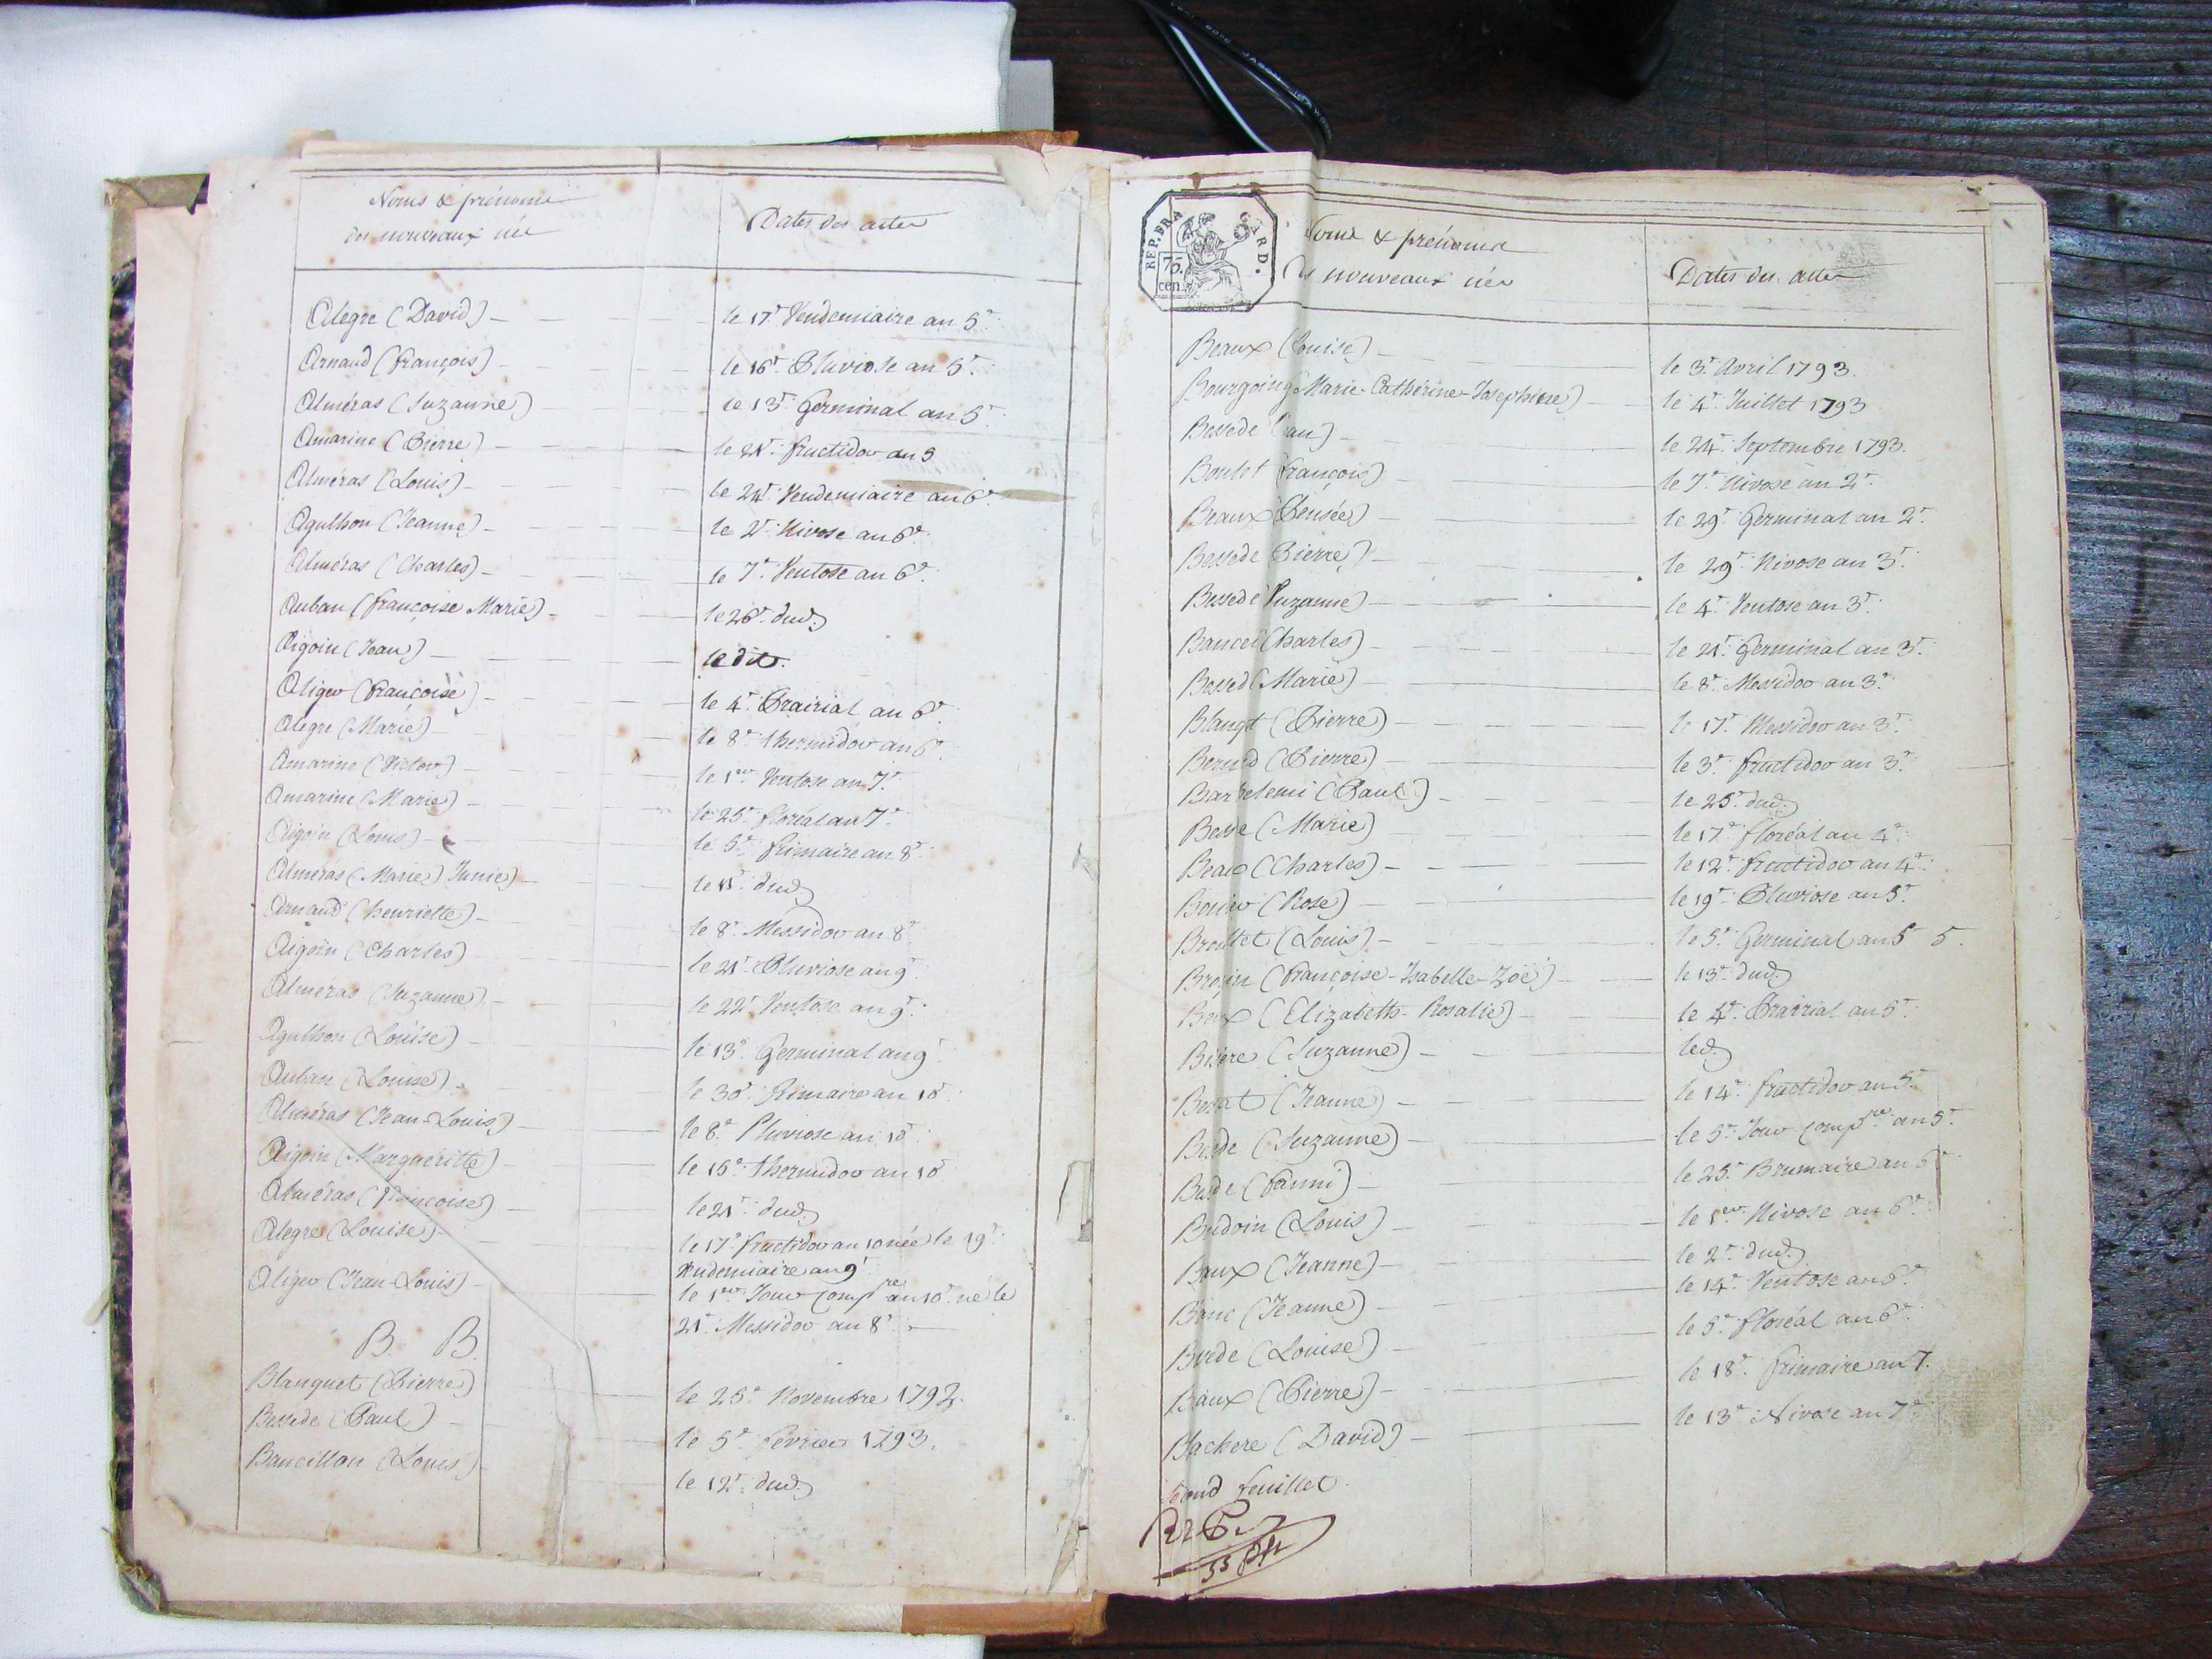 Noms & prénoms
des nouveaux nés
Dates des actes
Alegre (David) le 17e Vendemiaire an 5e
Arnaud (François) le 16e Pluviose an 5e
Alméras (Suzanne) le 13e Germinal an 5e
Amarine (Pierre) le 21e fructidor an 5
Alméras (Louis) le 24e Vendemiaire an 6e
Agulhon (Jeanne) le 2e Nivose an 6e
Alméras (Charles) le 7e Ventose an 6e
Auban (françoise Marie) le 26e dud.
Aigoin (Jean) le dit.
Aliger (françoise) le 4e Prairial an 6e
Alegre (Marie) le 8e thermidor an 6e
Amarine (Victor) le 1er Ventose an 7e
Amarine (Marie) le 25e floréal an 7e
Aigoin (Louis) le 5e frimaire an 8e
Alméras (Marie) le 11e dud.
Arnaud (henriette) le 8e Messidor an 8e
Aigoin (Charles) le 21e Pluviose an 9e
Almeras (Suzanne) le 22e Ventose an 9e
Agulhon (Louise) le 13e Germinal an 9e
Auban (Louise) le 30e frimaire an 10e
Alméras (Jean-Louis) le 8e Pluviose an 10e
Aigoin (Marguéritte) le 16e thermidor an 10e
Alméras (françoise) le 21e dud.
Alegre (Louise) le 17e fructidor an 10 née le 19e
Vendemiaire an 9e
Aliger (Jean-Louis) le 1er Jour compre an 10e né le
21e Messidor an 8e
B. B.
Blanquet (Pierre) le 25e Novembre 1792.
Bessede (Paul) le 5e fevrier 1793.
Bancillon (Louis) le 12e dud.
REP. FRA
75.
cen.
Noms & prénoms
des nouveaux nés
Dates des actes
Beaux (Louise) le 3e Avril 1793.
Bourgoing (Marie-Catherine-Josephine) le 4e Juillet 1793
Bessede (Jean) le 24e Septembre 1793.
Boulet (françois) le 7e Nivose an 2e
Beaux (Pensée) le 29e Germinal an 2e
Bessede (Pierre) le 29e Nivose an 3e
Bessede (Suzanne) le 4e Ventose an 3e
Bancel (Charles) le 21e Germinal an 3e
Bessed (Marie) le 8e Messidor an 3e
(Pierre) le 17e Messidor an 3e
(Pierre) le 3e fructidor an 3e
Barthelemi (Paul) le 25e dud.
Besse (Marie) le 17e floréal an 4e
(Charles) le 12e fructidor an 4e
(Rose) le 19e Pluviose an 5e
(Louis) le 5e Germinal an 5 5.
(françoise-Isabelle-Zoë) le 13e dud.
(Elizabeth-Rosalie) le 4e Prairial an 5e
(Suzanne) led.
(Jeanne) le 14e fructidor an 5e
(Suzanne) le 5e Jour compre an 5e
(fanni) le 25e Brumaire an 6e
(Louis) le 1er Nivose an 6e
(Jeanne) le 2e dud.
(Jeanne) le 14e Ventose an 6e
(Louise) le 5e floréal an 6e
(Pierre) le 18e frimaire an 7.
(David) le 13e Nivose an 7e
second feuillet.